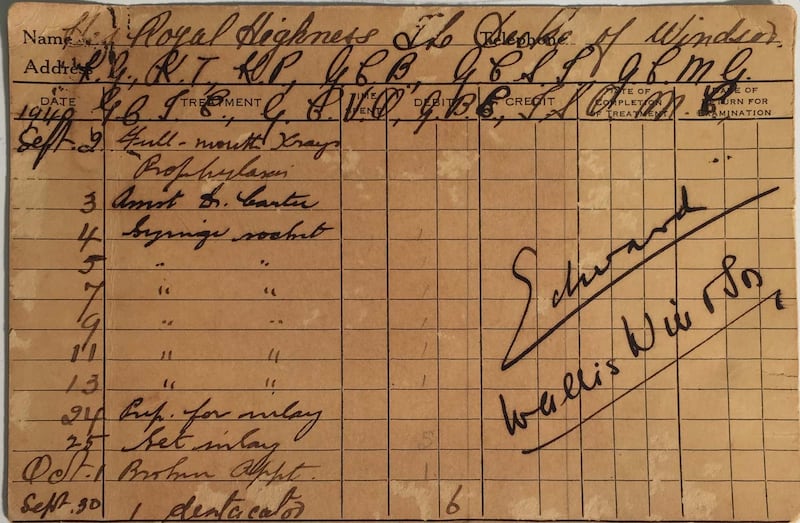 Name His Royal Highness The Duke of Windsor Telephone
Address K.G., K.T., K.P., G.C.B., G.C.S.I., G.C.M.G.
DATE TREATMENT TIME SPENT DEBIT CREDIT DATE OF COMPLETION OF TREATMENT DATE OF RETURN FOR EXAMINATION
1940 G.C.I.E., G.C.V.O., G.B.E., I.S.O., M.C.
Sept. 2 Full-mouth Xrays
Prophylaxis
3 Dr. Carter
4 Syringe socket 1
5 " " 1
7 " " 1
9 " " 1
11 " " 1
13 " " 1
24 Prep. for inlay
25 Set inlay 5
Oct. 1 Broken Appt. 1
Sept. 30 1 dentacator 6
Edward
Wallis Windsor